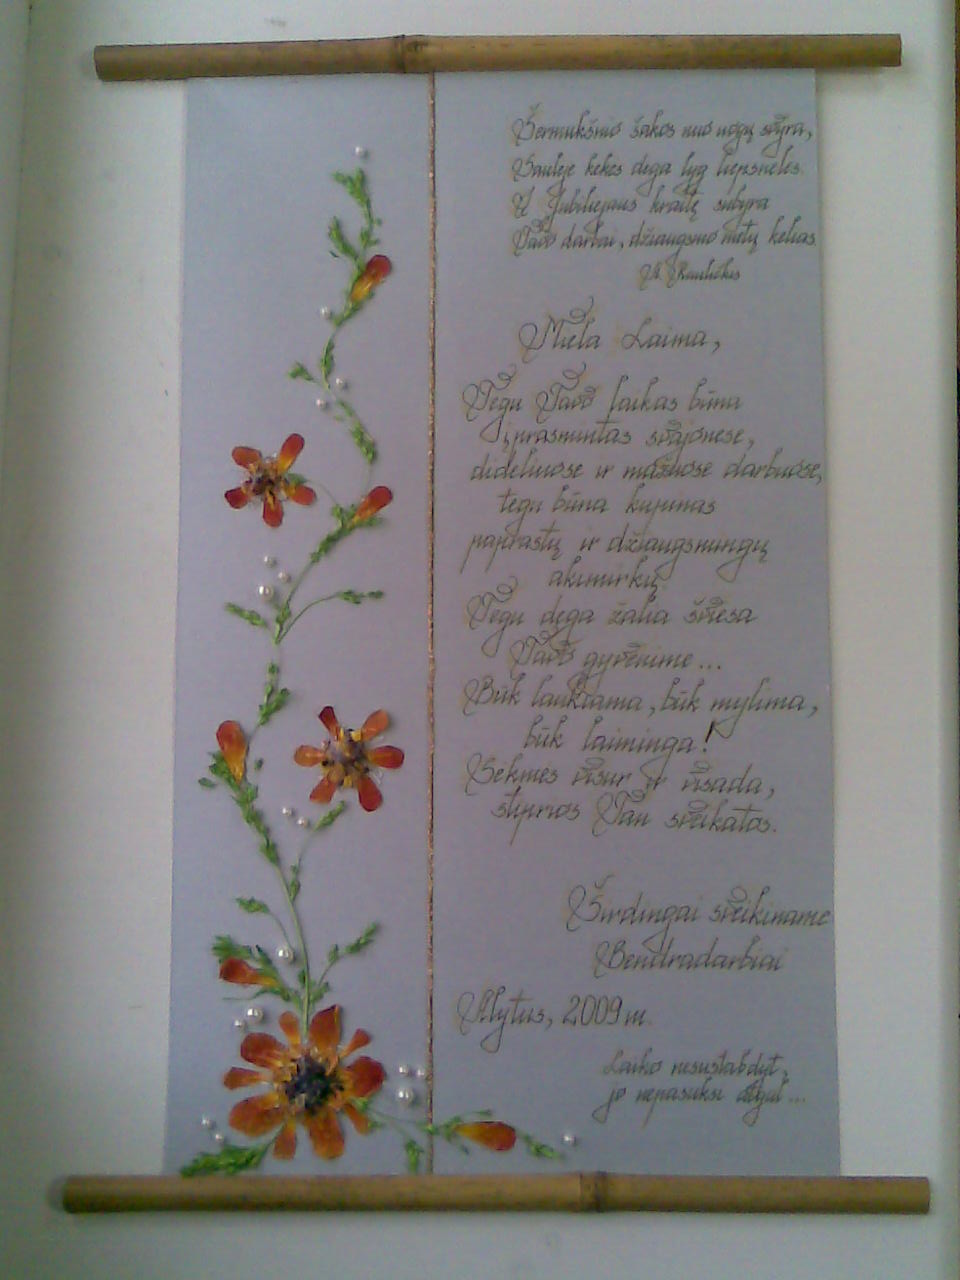 Šermukšnio šakos nuo uogų svyra,
Saulėje kekės dega lyg liepsnelės.
Į Jubiliejaus kraitę subyra
Tavo darbai, džiaugsmo metų kelias.
Miela Laima,
Tegu Tavo laikas būna
įprasmintas svajonėse,
dideliuose ir mažuose darbuose,
tegu būna kupinas
paprastų ir džiaugsmingų
akimirkų.
Tegu dega žalia šviesa
Tavo gyvenime...
Būk laukiama, būk mylima,
būk laiminga!
Sėkmės visur ir visada,
stiprios Tau sveikatos.
Širdingai sveikiname
Bendradarbiai
Alytus, 2009 m.
Laiko nesustabdyt,
jo nepasuksi atgal...